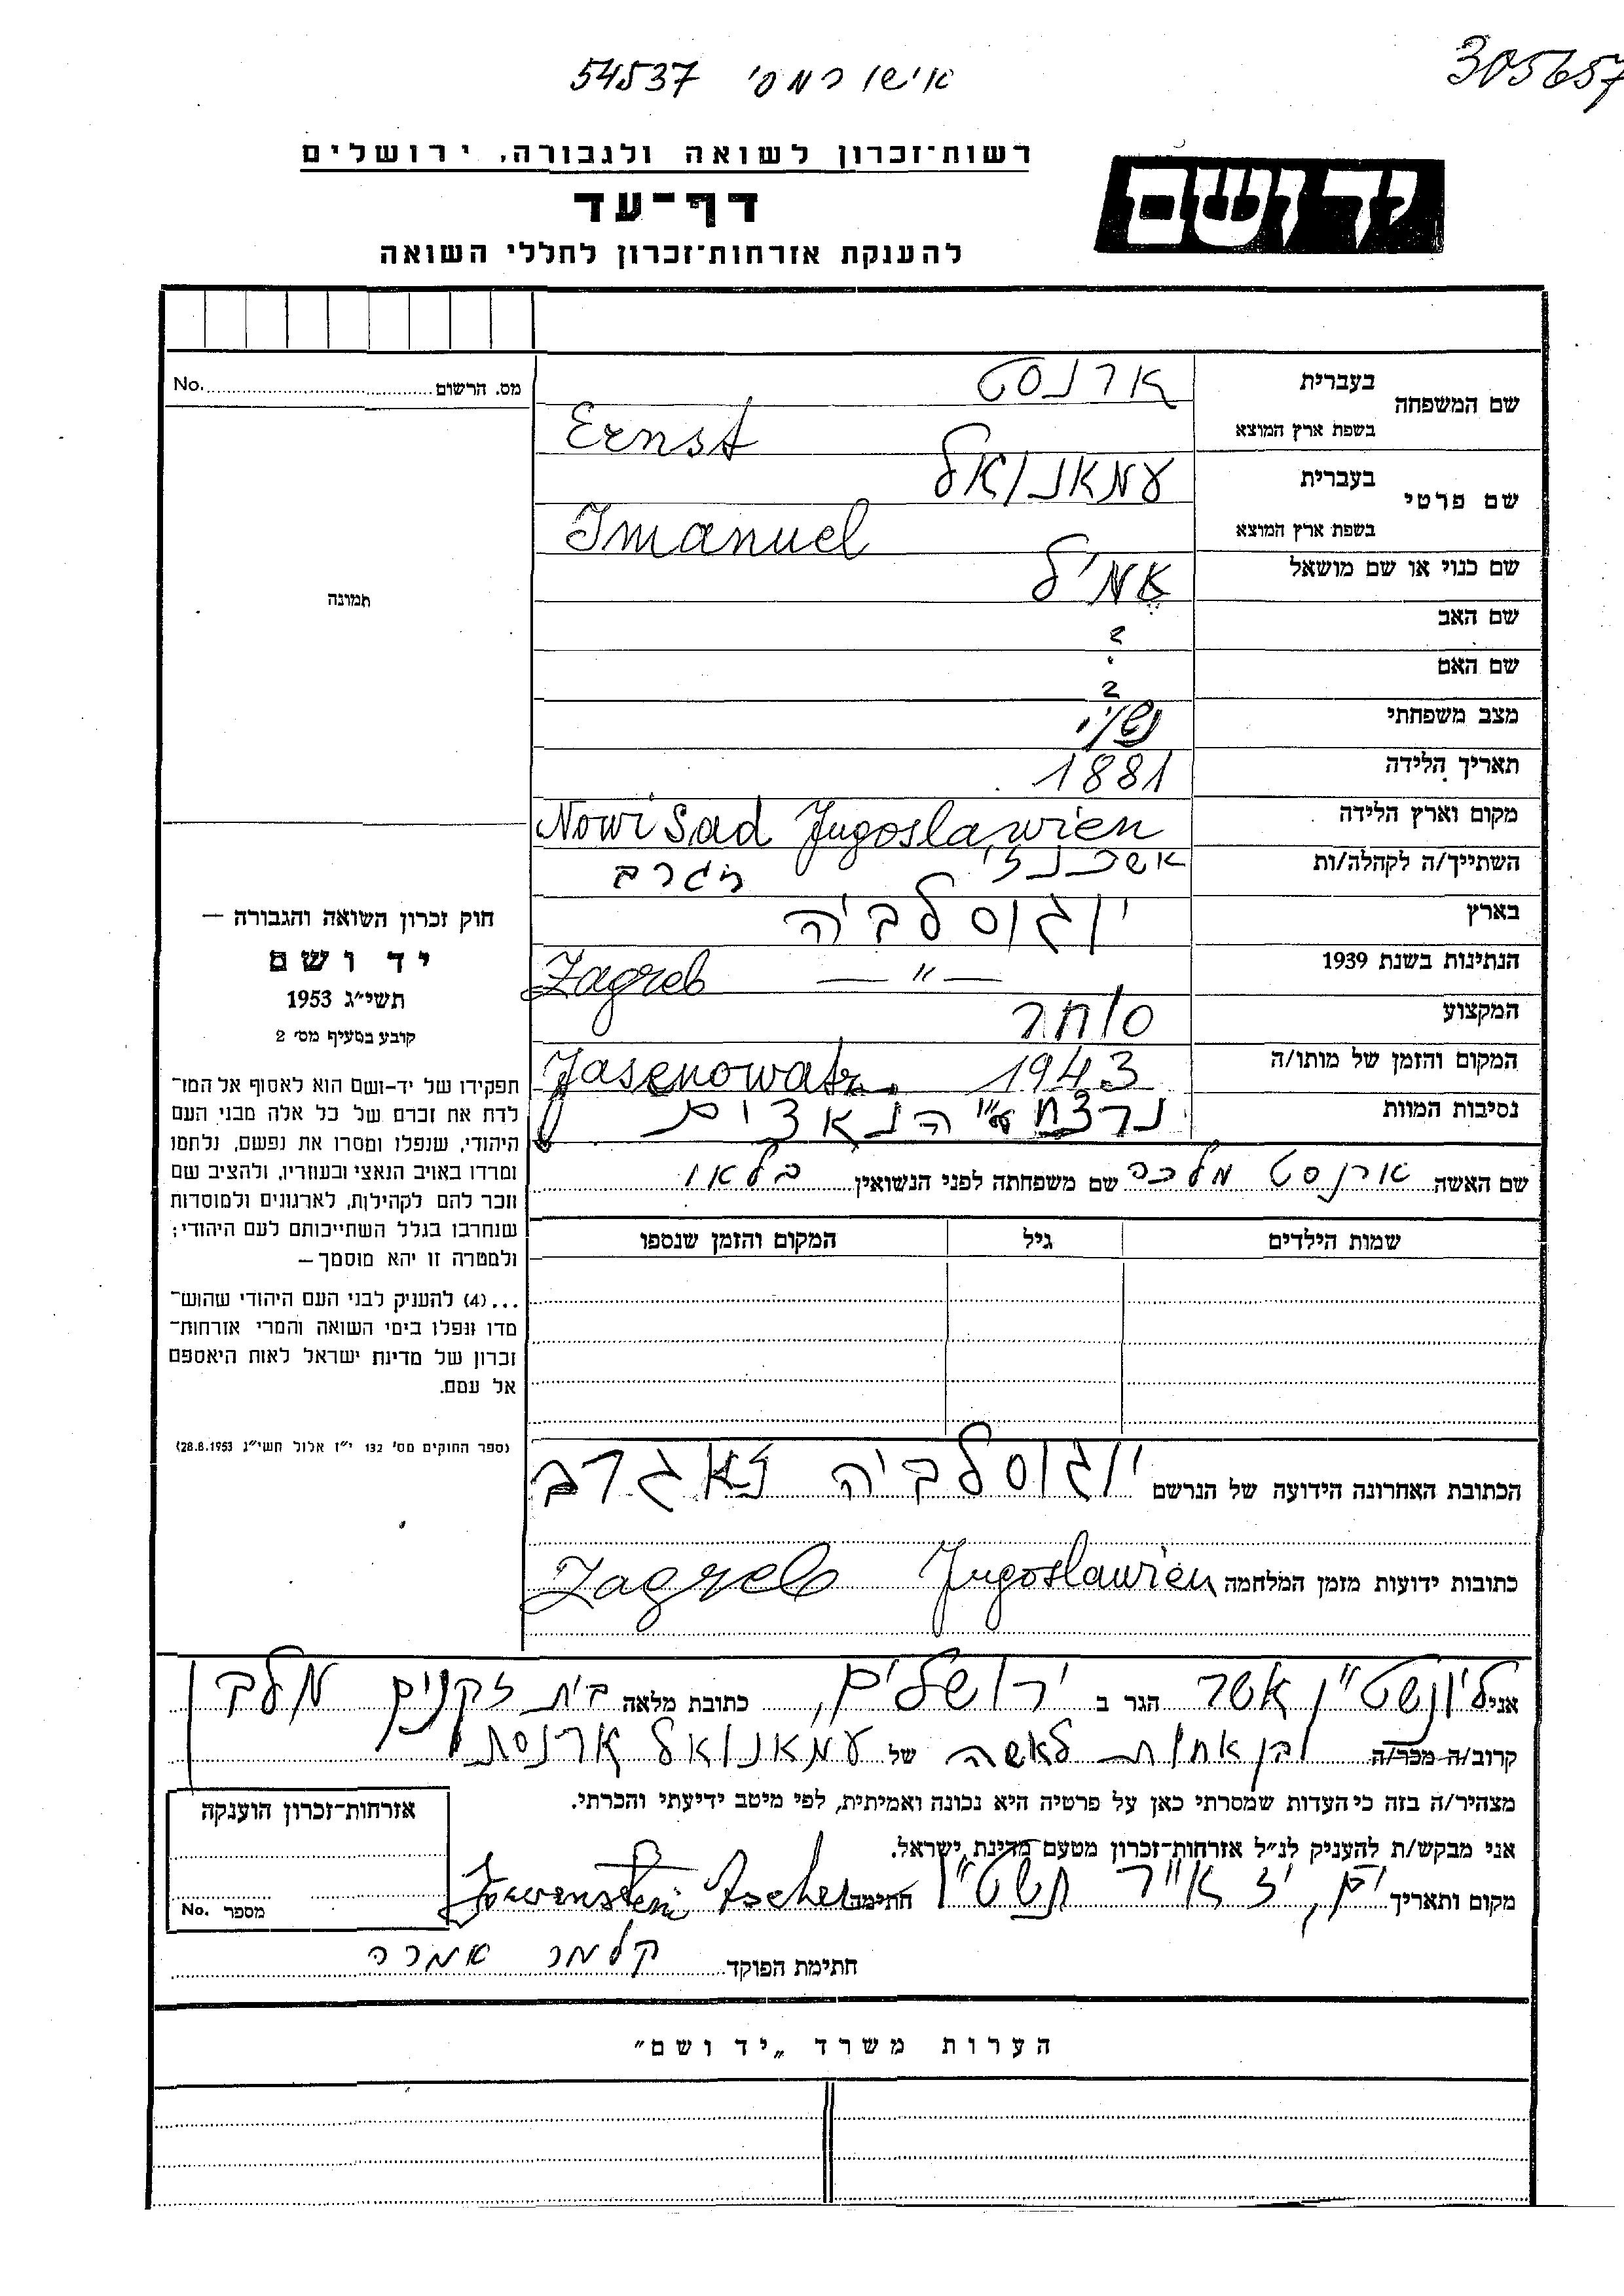 305657
54537 אישו רמסי
יד ושם
רשות־זכרון לשואה ולגבורה, ירושלים
דף־עד
להענקת אזרחות־זכרון לחללי השואה
No. מס. הרשום
תמונה
שם המשפחה
בעברית ארנסט
בשפת ארץ המוצא Ernst
שם פרטי
בעברית עמאנואל
בשפת ארץ המוצא Imanuel
שם כנוי או שם מושאל אמיל
שם האב ?
שם האם ?
מצב משפחתי נשוי
תאריך הלידה 1881
מקום וארץ הלידה Nowi Sad Jugoslawien
השתייך/ה לקהלה/ות אשכנזי זגרב
בארץ יוגוסלביה
הנתינות בשנת 1939 — " — Zagreb
המקצוע סוחר
המקום והזמן של מותו/ה 1943 Jasenowatz
נסיבות המוות נרצח ע"י הנאצים
שם האשה ארנסט מלכה שם משפחתה לפני הנשואין בלאו
שמות הילדים גיל המקום והזמן שנספו
הכתובת האחרונה הידועה של הנרשם יוגוסלביה זאגרב
כתובות ידועות מזמן המלחמה Zagreb Jugoslawien
חוק זכרון השואה והגבורה —
יד ושם
תשי״ג 1953
קובע בסעיף מס׳ 2
תפקידו של יד-ושם הוא לאסוף אל המו־
לדת את זכרם של כל אלה מבני העם
היהודי, שנפלו ומסרו את נפשם, נלחמו
ומרדו באויב הנאצי ובעוזריו, ולהציב שם
וזכר להם לקהילות, לארגונים ולמוסדות
שנחרבו בגלל השתייכותם לעם היהודי;
ולמטרה זו יהא מוסמך —
...(4) להעניק לבני העם היהודי שהוש־
מדו ונפלו בימי השואה והמרי אזרחות־
זכרון של מדינת ישראל לאות היאספם
אל עמם.
(ספר החוקים מס׳ 132 י״ז אלול תשי״ג 28.8.1953)
אני ליונשטיין אשר הגר ב ירושלים, כתובת מלאה בית זקנים מלבן
קרוב/ה מכר/ה בן אחות לאשה של עמאנואל ארנסט
מצהיר/ה בזה כי העדות שמסרתי כאן על פרטיה היא נכונה ואמיתית, לפי מיטב ידיעתי והכרתי.
אני מבקש/ת להעניק לנ״ל אזרחות־זכרון מטעם מדינת ישראל.
מקום ותאריך י-ם, יז אייר תשט"ו חתימה Loewenstein Ascher
חתימת הפוקד קלמר אמרה
אזרחות־זכרון הוענקה
No. מספר
הערות משרד „יד ושם"